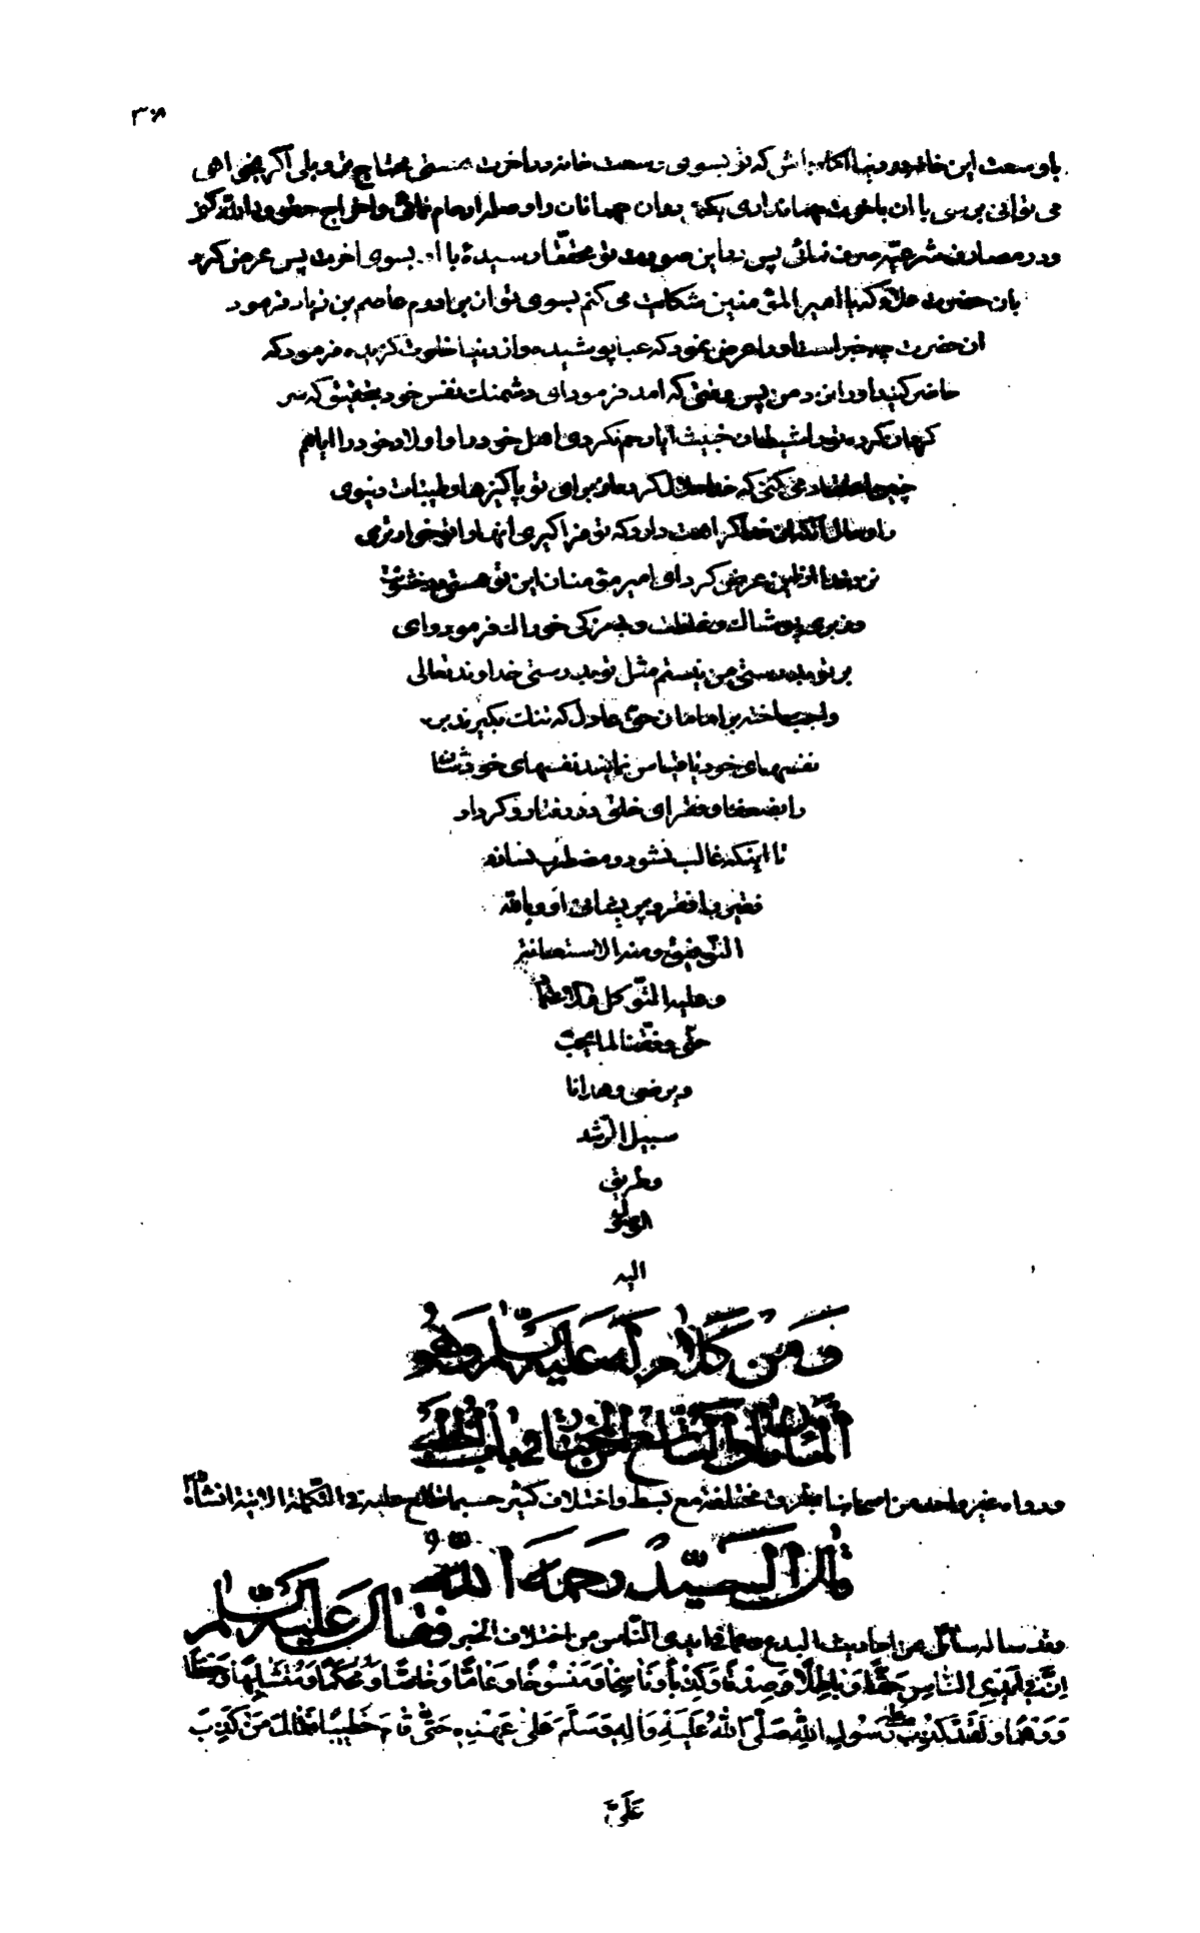 ۳۰۸
باوسعت این خانه در دنیا آگاه باش که تو بسوی وسعت خانه در اخرت هستی محتاج تر و بلی اگر بخواهی
می توانی برسی با ان باخرت مهمانداری بکنی در ان مهمانان را و صله ارحام نمائی و اخراج حقوق
ودر مصارف شرعیّه صرف نمائی پس در این صورت تو محقّقا رسیدۀ با ان بسوی اخرت پس عرض کرد
بان حضرت علاء که یا امیر المؤمنین شکایت می کنم بسوی تو از برادرم عاصم بن زیاد فرمود
ان حضرت چه خبر است او را عرض نمود که عبا پوشیده و از دنیا خلوت گزیده فرمود که
حاضر کنید او را نزد من پس وقتی که امد فرمود ای دشمنک نفس خود بتحقیق که سر
کردان کرده تو را شیطان خبیث ایا رحم نکردی اهل خود را و اولاد خود را ایا
چنین اعتقاد می کنی که خدا حلال کرده برای تو پاکیزها و طیّبات دنیوی
را و حال انکه ان خدا کراهت دارد که تو فرا گیری انها را تو خوارتری
نزد خدا از این عرض کرد ای امیر مؤمنان این تو هستی در خشونت
و زبری پوشاک و غلظت و بی مزکی خوراک فرمود وای
بر تو بدرستی من نیستم مثل تو بدرستی خداوند تعالی
واجب ساخته بر امامان حق و عادل که تنک بگیرند بر
نفسهای خود یا قیاس نمایند نفسهای خودشان
را بضعفا و فقرای خلق در رفتار و کردار
تا اینکه غالب نشود و مضطرب نسازد
فقیر را فقر و پریشانی او و بالله
التّوفیق و منه الاستعانة
و علیه التّوکل
حتّی وفّقنا لما یحبّ
و یرضی و هدانا
سبیل الرّشد
وطریق
الیه
وَمِنْ كَلامٍ لَهُ عَلَيْهِ السَّلامُ وَهُوَ
الْمِأَتانِ وَالتّاسِعُ مِنَ الْمُخْتارِ في بابِ الْخُطَبِ
ورواه غير واحد من اصحابنا بطرق مختلفة مع بسط واختلاف كثير حسبما تطّلع عليه في التّكملة الاتية انشاء الله
قالَ السَّيِّدُ رَحِمَهُ اللهُ
وقد سأله سائل عن احاديث البدع وعمّا في ايدى النّاس من اختلاف الخبر فَقالَ عَلَيْهِ السَّلامُ
اِنَّ في اَيْدِى النّاسِ حَقّاً وَباطِلاً وَصِدْقاً وَكِذْباً وَناسِخاً وَمَنْسُوخاً وَعامّاً وَخاصّاً وَمُحْكَماً وَمُتَشابِهاً وَحِفْظاً
وَوَهْماً وَلَقَدْ كُذِبَ عَلى رَسُولِ اللهِ صَلَّى اللهُ عَلَيْهِ وَالِهِ وَسَلَّمَ عَلى عَهْدِهِ حَتّى قامَ خَطيباً فَقالَ مَنْ كَذَبَ
عَلَىَّ